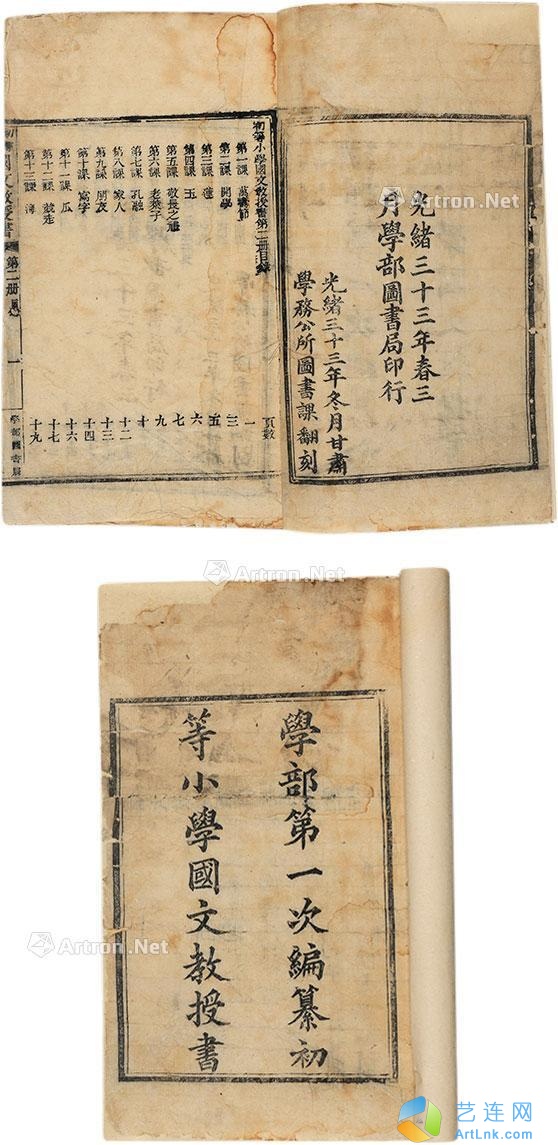 光緒三十三年春三
月學部圖書局印行
光緒三十三年冬月甘肅
學務公所圖書課翻刻
初等小學國文教授書第二册目錄
頁數
第一課 萬壽節 一
第二課 開學 三
第三課 蓮 五
第四課 玉 六
第五課 敬長之禮 七
第六課 老萊子 九
第七課 孔融 十
第八課 家人 十二
第九課 朋友 十三
第十課 寫字 十四
第十一課 瓜 十六
第十二課 競走 十七
第十三課 海 十九
國文教授書 第二册 一 學部圖書局
Artron.Net
Artron.Net
Artron.Net
Artron.Net
學部第一次編纂初
等小學國文教授書
Artron.Net
Artron.Net
艺连网
ArtLnk.com